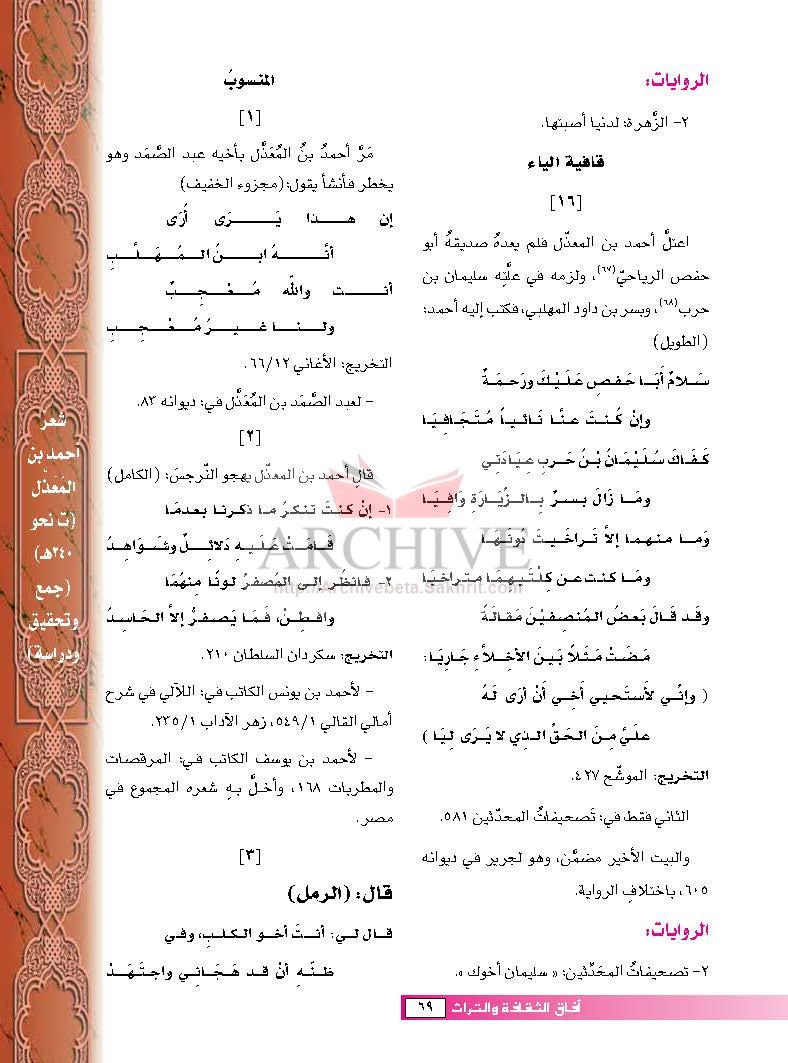 الروايات:
٢- الزَّهرة: لدنيا أصبتها.
قافية الياء
[١٦]
اعتلَّ أحمد بن المعذّل فلم يعدهُ صديقهُ أبو
حفص الرياحيّ(٦٧)، ولزمه في علَّتِه سليمان بن
حرب(٦٨)، وبسر بن داود المهلبي، فكتب إليه أحمد:
(الطويل)
سَلامٌ أَبَا حَفصٍ عَلَيْكَ ورَحمَةٌ
وإنْ كُنتَ عنَّا نَائياً مُتَجَافِيَا
كَفَاكَ سُلَيْمَانُ بْنُ حَربٍ عِيَادَتِي
ومَا زَالَ بسرٌ بِالزِّيَارَةِ وَافِيَا
وَمَا منهما إلاّ تَراخَيتَ دُونَهَا
ومَا كنت عن كِلْتَيهِمَا متراخيَا
وقَد قَالَ بَعضُ المُنصِفيْنَ مَقَالَةً
مَضَتْ مَثَلاً بَينَ الأخِلاَّءِ جَارِيَا:
( وإنِّي لأَستَحيي أَخِي أَنْ أرَى لَهُ
عليَّ مِنَ الحَقِّ الذِي لا يَرَى لِيَا )
التخريج: الموشّح ٤٢٧.
الثاني فقط في: تَصحيفاتُ المحدّثين ٥٨١.
والبيت الأخير مضمَّن، وهو لجرير في ديوانه
٦٠٥، باختلاف الرواية.
الروايات:
٢- تصحيفاتُ المحَدِّثين: « سليمان أخوك ».
المنسوبُ
[١]
مَرَّ أحمدُ بنُ المُعَذَّل بأخيه عبد الصَّمَد وهو
يخطر فأنشأ يقول: (مجزوء الخفيف)
إن هـذا يَـرَى أُرَى
أنَّـهُ ابـنُ المُهَلَّبِ
أنـت والله مُعْجِبٌ
ولنا غيرُ مُعْجِبِ
التخريج: الأغاني ٦٦/١٢.
- لعبد الصَّمَد بن المُعَذَّل في: ديوانه ٨٣.
[٢]
قال أحمد بن المعذّل يهجو النَّرجسَ: (الكامل)
١- إنْ كنتَ تنكرُ ما ذكرنا بعدمَا
قَامَتْ عَلَيهِ دَلائِلٌ وشَوَاهِدُ
٢- فانظُر إلى المُصفرّ لَونًا مِنهُمَا
وافطِنْ، فَمَا يَصفرُّ إلاَّ الحَاسِدُ
التخريج: سكردان السلطان ٢١٠.
- لأحمد بن يونس الكاتب في: اللآلي في شرح
أمالي القالي ٥٤٩/١، زهر الآداب ٢٣٥/١.
- لأحمد بن يوسف الكاتب في: المرقصات
والمطربات ١٦٨، وأخلَّ بهِ شعره المجموع في
مصر.
[٣]
قال: (الرمل)
قال لي: أنتَ أخو الكلبِ، وفي
ظنِّهِ أنْ قد هَجَانِي واجتَهَدْ
شعر
أحمد بن
المَعَذَّل
(ت نحو
٢٤٠هـ)
(جمع
وتحقيق
ودراسة)
ARCHIVE
http://Archivebeta.Sakhrit.com
آفاق الثقافة والتراث ٦٩